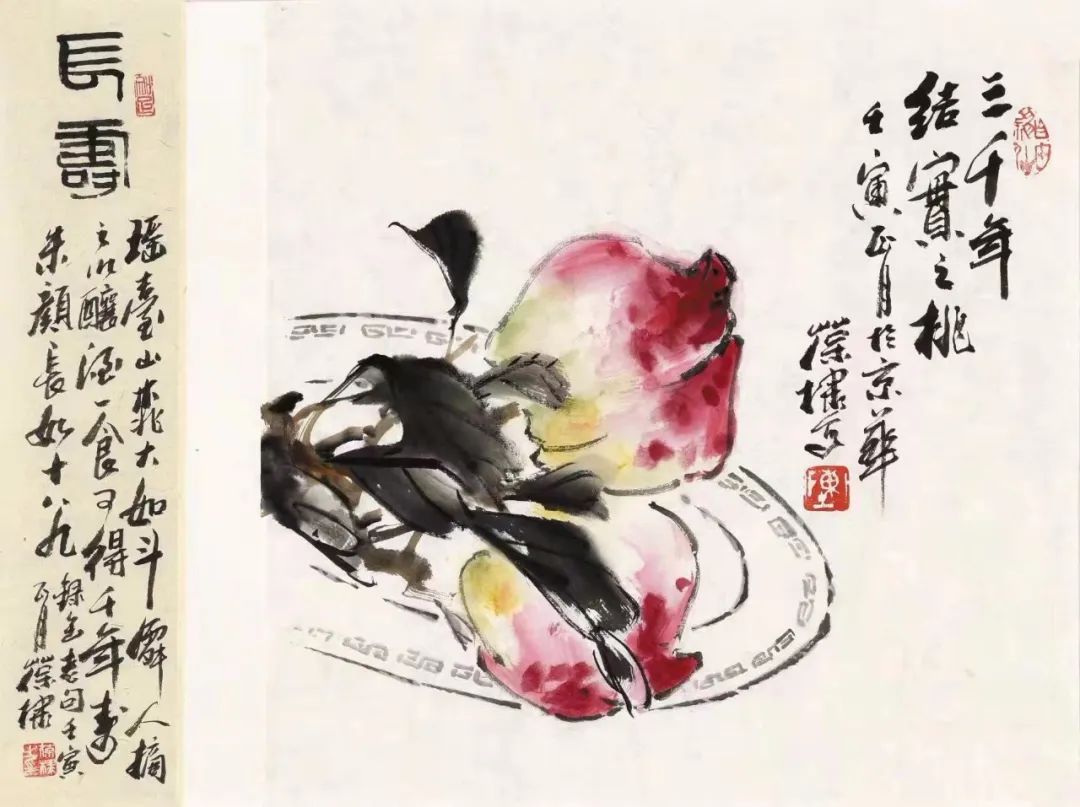 三千年
結實之桃
壬寅正月於京華
葆棣写
陳
長壽
瑶臺山桃大如斗僊人摘
之以釀酒一食可得千年壽
朱顏長如十八九
錄缶老句壬寅
正月葆棣